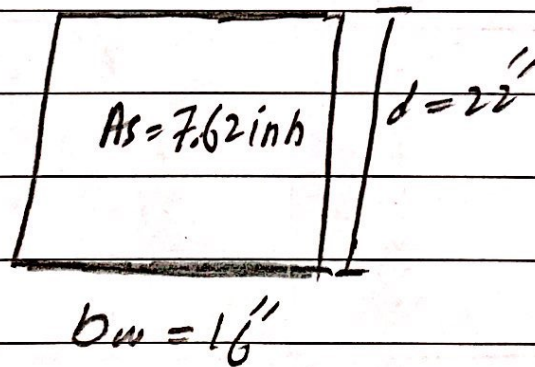 As = 7.62 inh
d = 22"
bw = 16"